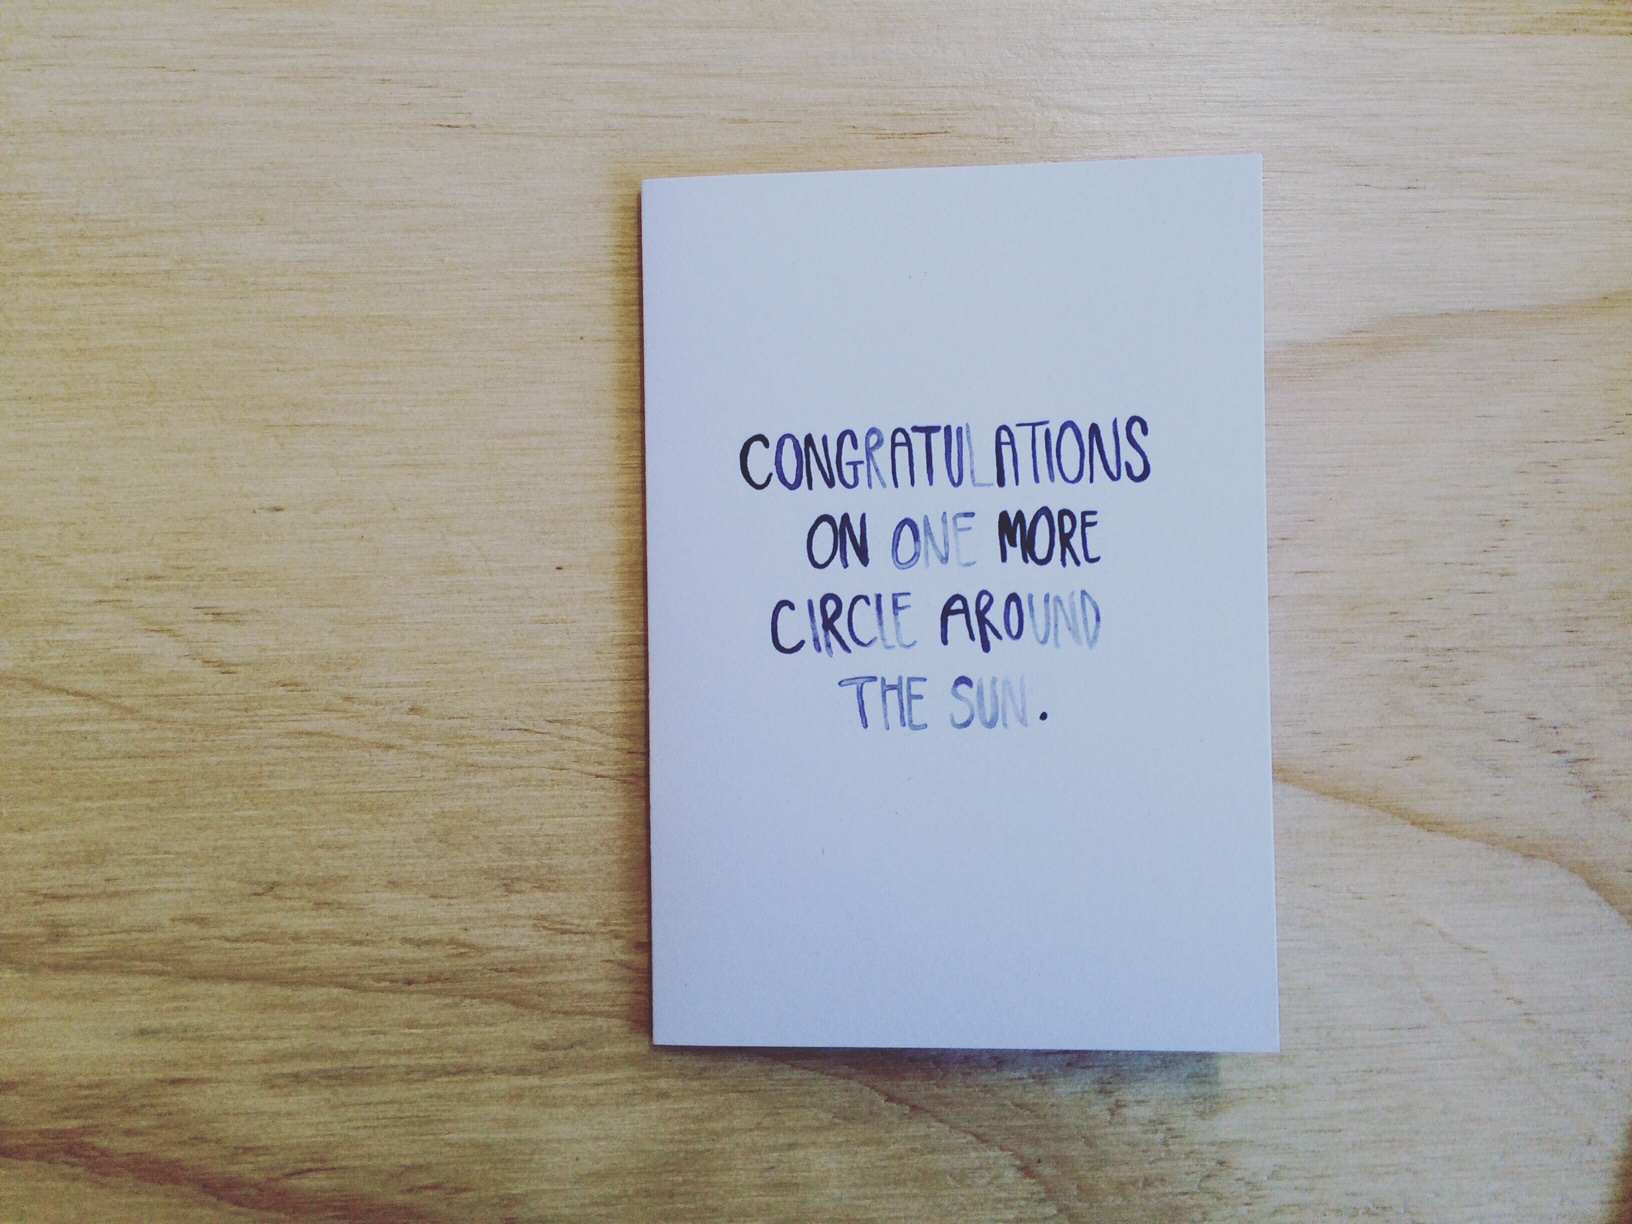 CONGRATULATIONS
ON ONE MORE
CIRCLE AROUND
THE SUN.